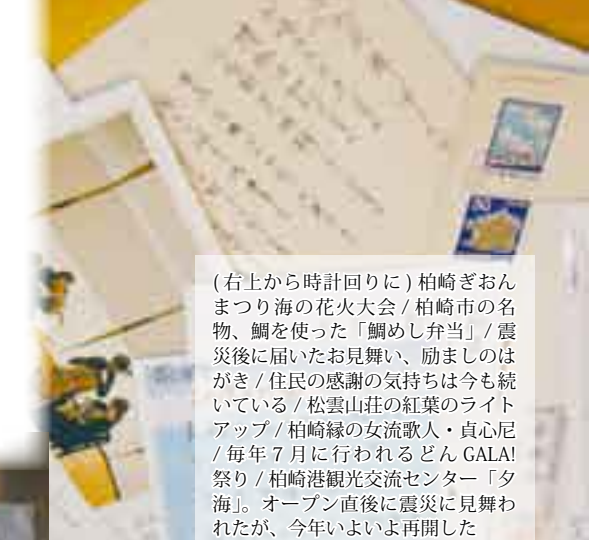 (右上から時計回りに) 柏崎ぎおん
まつり海の花火大会 / 柏崎市の名
物、鯛を使った「鯛めし弁当」/ 震
災後に届いたお見舞い、励ましのは
がき / 住民の感謝の気持ちは今も続
いている / 松雲山荘の紅葉のライト
アップ / 柏崎縁の女流歌人・貞心尼
/ 毎年 7 月に行われるどん GALA!
祭り / 柏崎港観光交流センター「夕
海」。オープン直後に震災に見舞わ
れたが、今年いよいよ再開した